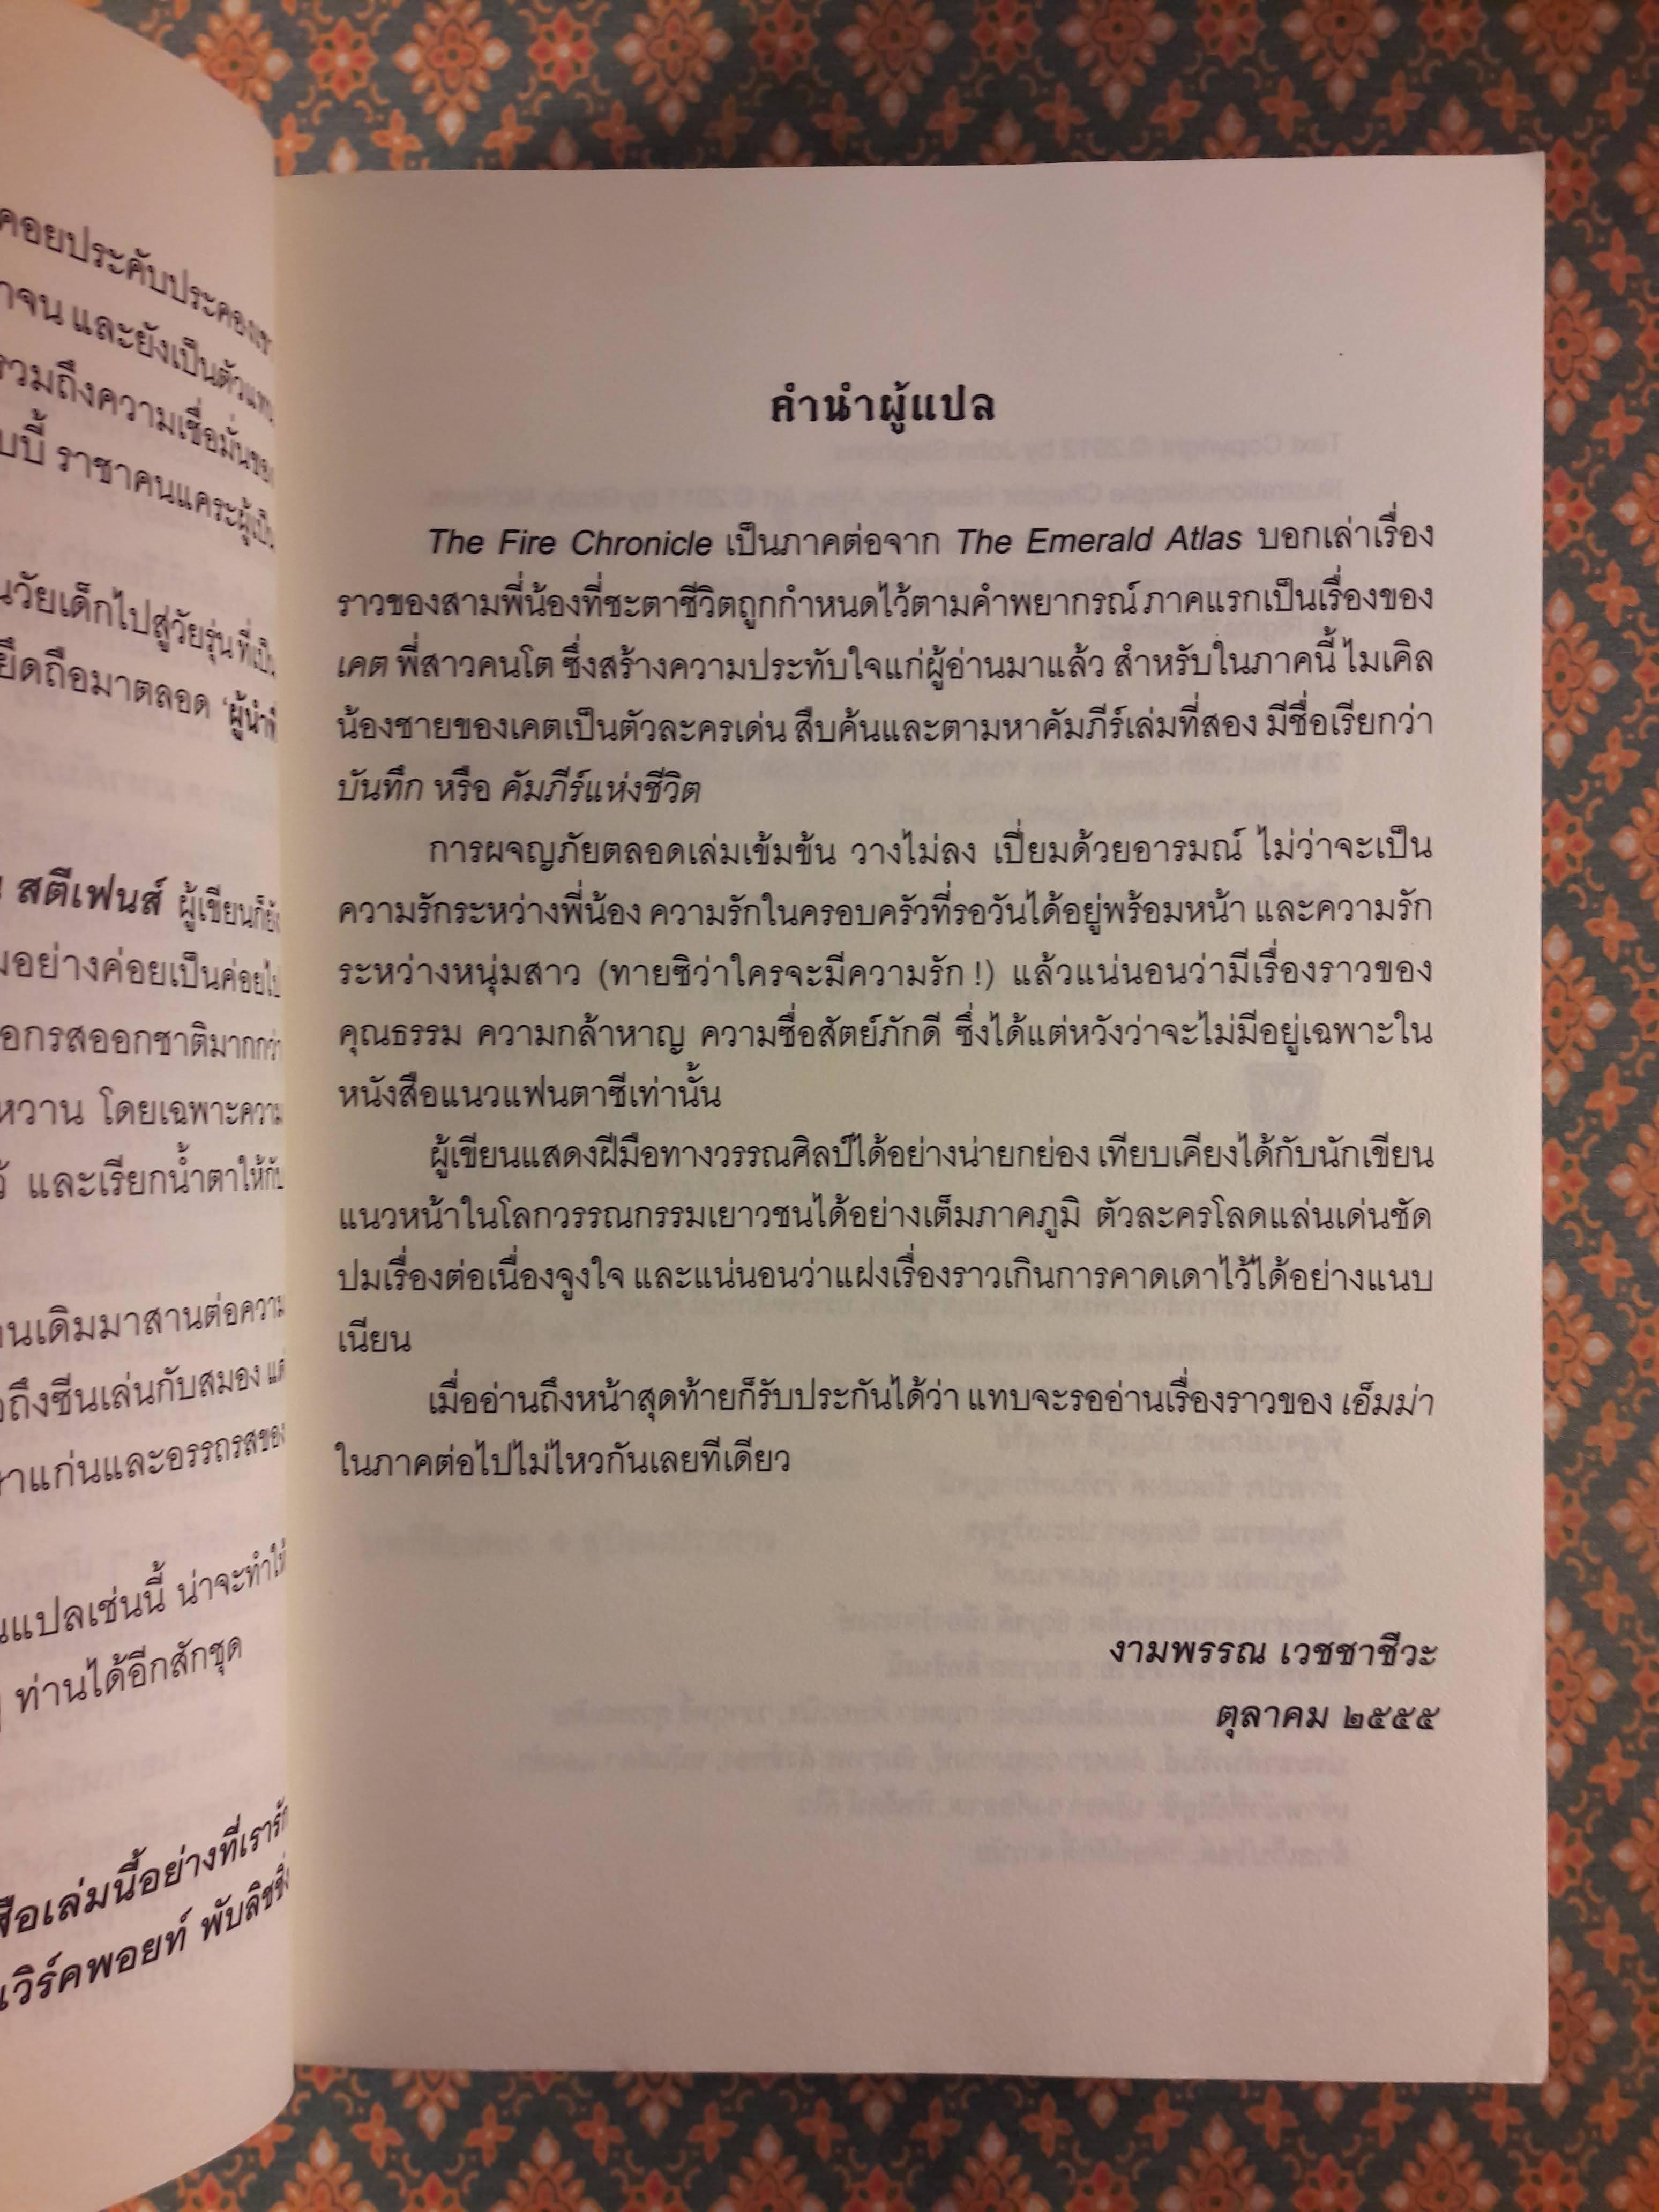 คอยประคับประคอง
จน และยังเป็นตัวแทน
รวมถึงความเชื่อมั่นของ
บบี้ ราชาคนแคระผู้เป็น
วัยเด็กไปสู่วัยรุ่น ที่เป็น
ยึดถือมาตลอด ‘ผู้นำ
สตีเฟนส์ ผู้เขียนก็ยัง
อย่างค่อยเป็นค่อยไป
กรสออกชาติมากกว่า
หวาน โดยเฉพาะความ
และเรียกน้ำตาให้กับ
นเดิมมาสานต่อความ
ถึงซีนเล่นกับสมอง แต่
แก่นและอรรถรสของ
แปลเช่นนี้ น่าจะทำให้
ท่านได้อีกสักชุด
เล่มนี้อย่างที่เรารัก
เวิร์คพอยท์ พับลิชชิ่ง
คำนำผู้แปล
The Fire Chronicle เป็นภาคต่อจาก The Emerald Atlas บอกเล่าเรื่อง
ราวของสามพี่น้องที่ชะตาชีวิตถูกกำหนดไว้ตามคำพยากรณ์ ภาคแรกเป็นเรื่องของ
เคต พี่สาวคนโต ซึ่งสร้างความประทับใจแก่ผู้อ่านมาแล้ว สำหรับในภาคนี้ ไมเคิล
น้องชายของเคตเป็นตัวละครเด่น สืบค้นและตามหาคัมภีร์เล่มที่สอง มีชื่อเรียกว่า
บันทึก หรือ คัมภีร์แห่งชีวิต
การผจญภัยตลอดเล่มเข้มข้น วางไม่ลง เปี่ยมด้วยอารมณ์ ไม่ว่าจะเป็น
ความรักระหว่างพี่น้อง ความรักในครอบครัวที่รอวันได้อยู่พร้อมหน้า และความรัก
ระหว่างหนุ่มสาว (ทายซิว่าใครจะมีความรัก !) แล้วแน่นอนว่ามีเรื่องราวของ
คุณธรรม ความกล้าหาญ ความซื่อสัตย์ภักดี ซึ่งได้แต่หวังว่าจะไม่มีอยู่เฉพาะใน
หนังสือแนวแฟนตาซีเท่านั้น
ผู้เขียนแสดงฝีมือทางวรรณศิลป์ได้อย่างน่ายกย่อง เทียบเคียงได้กับนักเขียน
แนวหน้าในโลกวรรณกรรมเยาวชนได้อย่างเต็มภาคภูมิ ตัวละครโลดแล่นเด่นชัด
ปมเรื่องต่อเนื่องจูงใจ และแน่นอนว่าแฝงเรื่องราวเกินการคาดเดาไว้ได้อย่างแนบ
เนียน
เมื่ออ่านถึงหน้าสุดท้ายก็รับประกันได้ว่า แทบจะรออ่านเรื่องราวของ เอ็มม่า
ในภาคต่อไปไม่ไหวกันเลยทีเดียว
งามพรรณ เวชชาชีวะ
ตุลาคม ๒๕๕๕